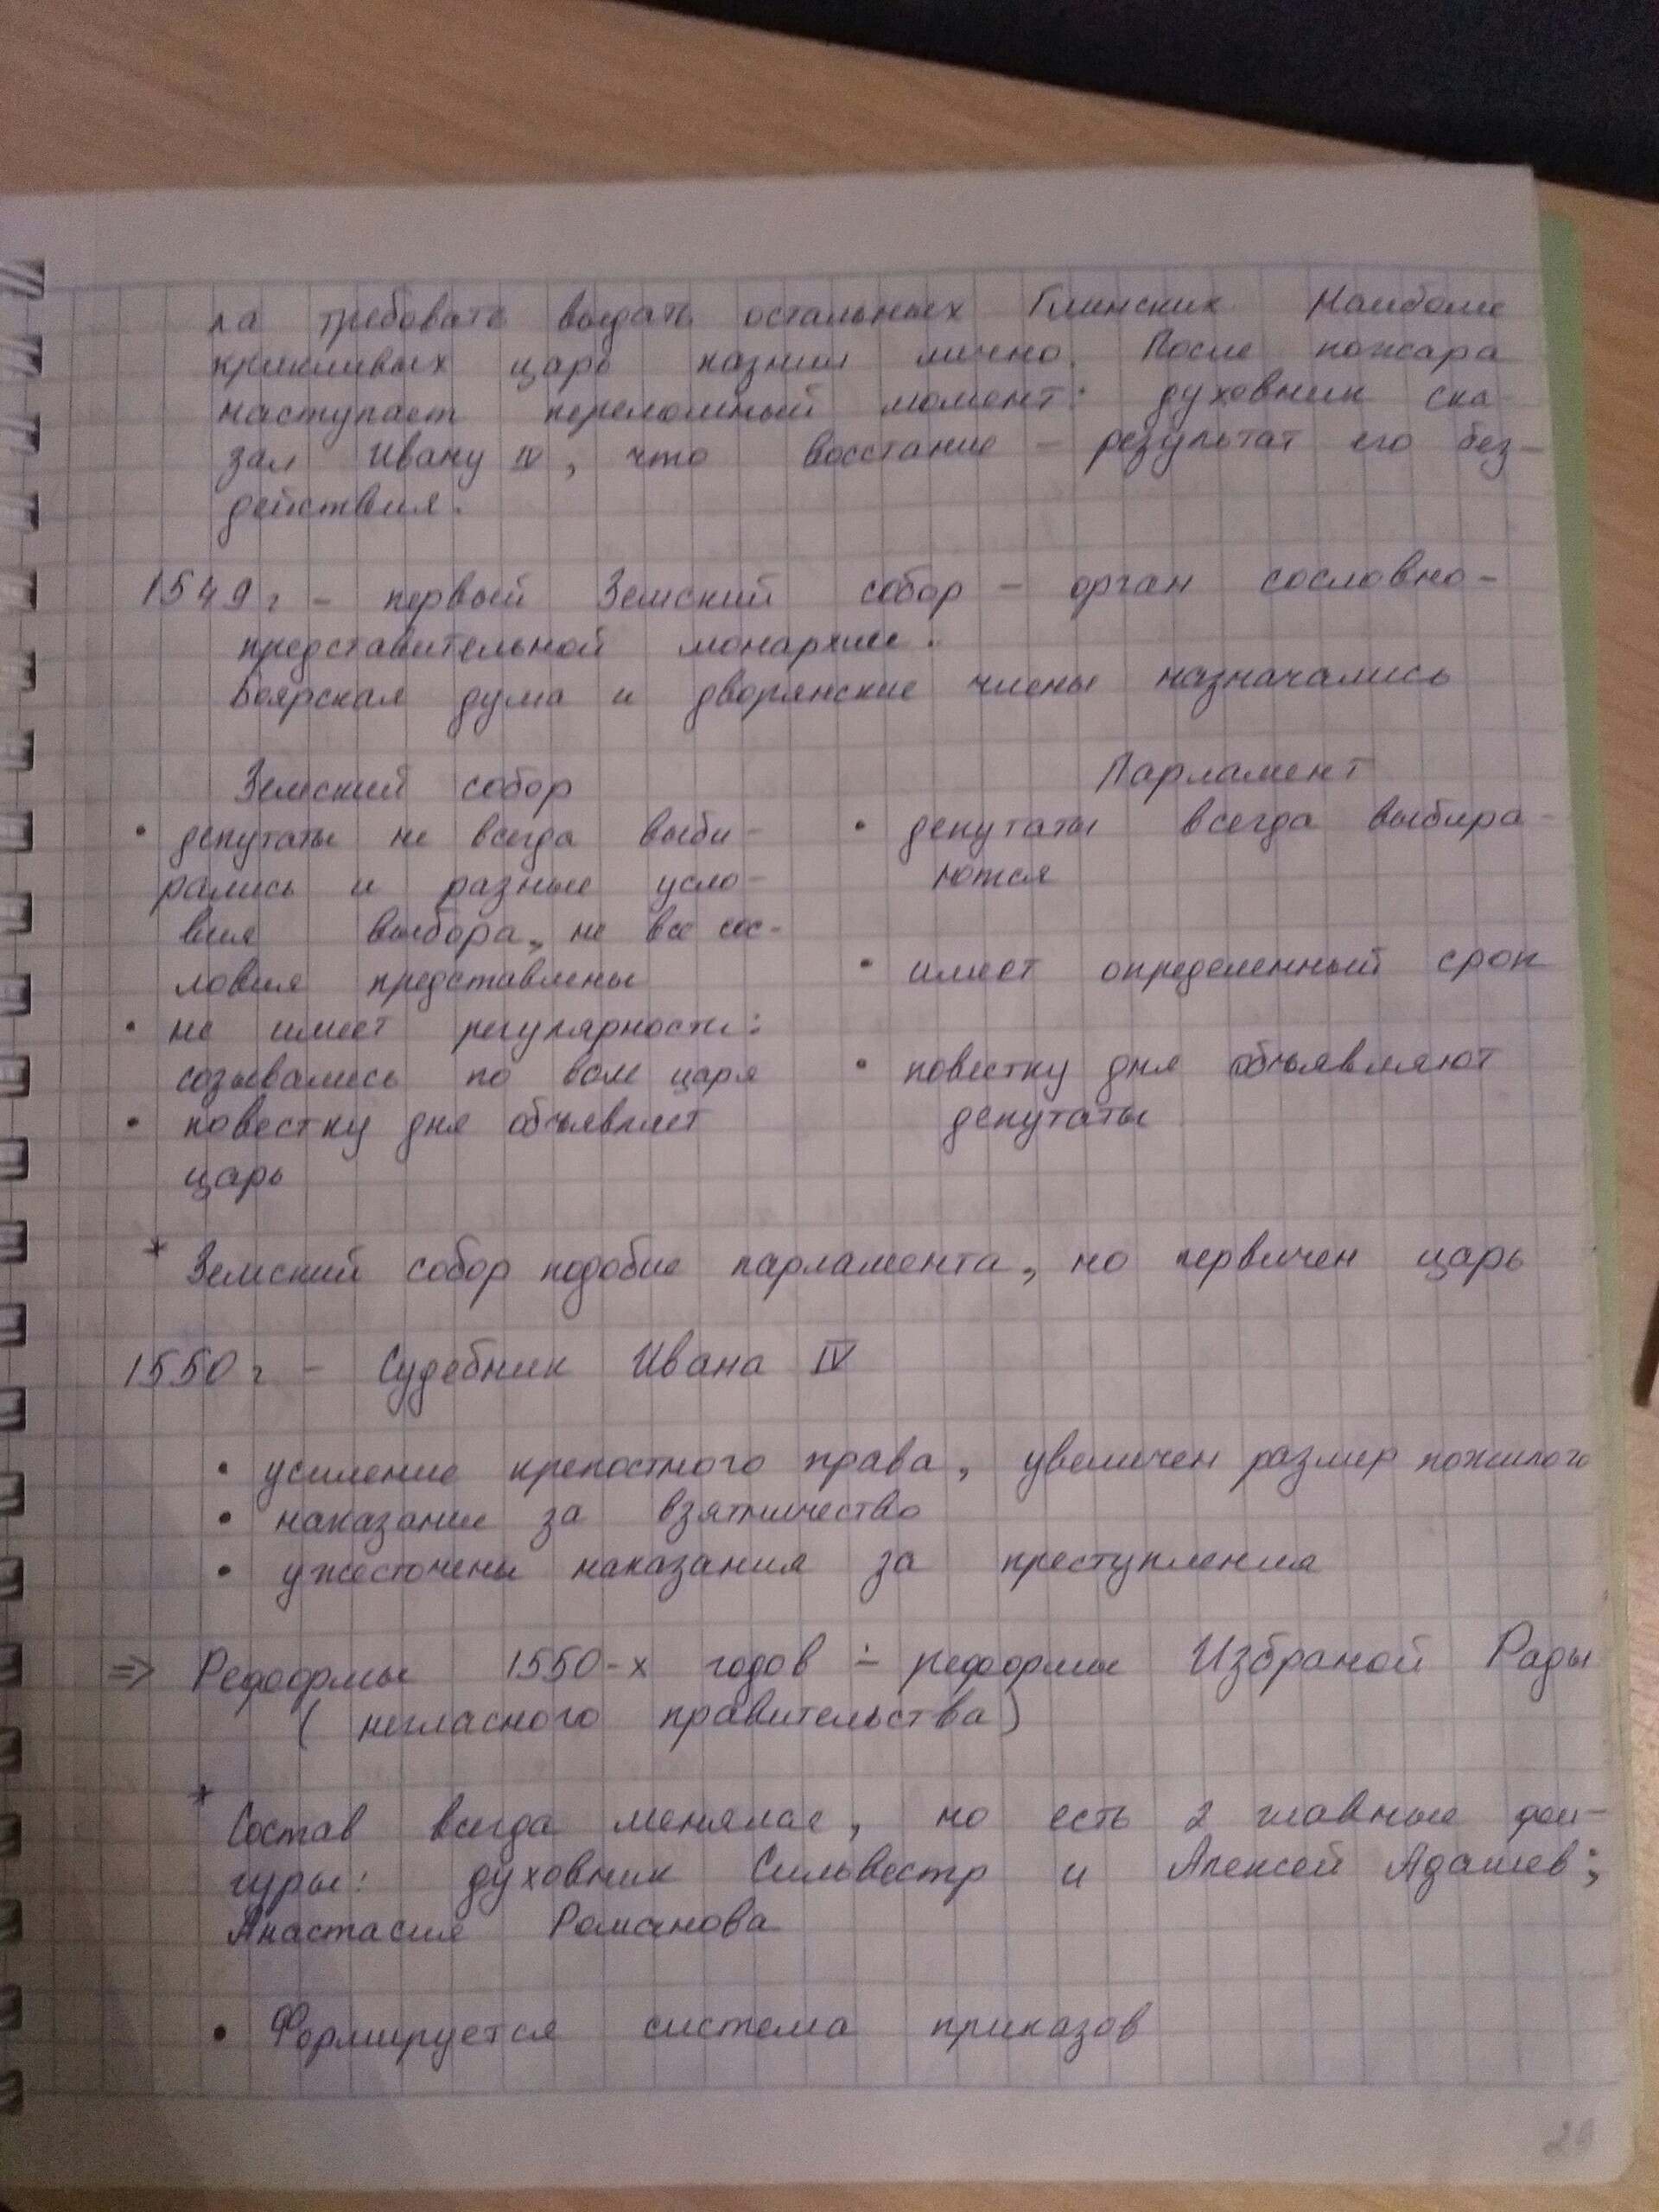 ла требовать выдать остальных Глинских. Наиболее
крикливых царь казнил лично. После пожара
наступает переломный момент: духовник ска-
зал Ивану IV, что восстание - результат его без-
действия.
1549г - первый Земский собор - орган сословно-
представительной монархии.
Боярская дума и дворянские члены назначались
Земский собор
Парламент
• депутаты не всегда выби-
рались и разные усло-
вия выбора, не все сос-
ловия представлены
• не имеет регулярности:
созывались по воле царя
• повестку дня объявляет
царь
• депутаты всегда выбира-
ются
• имеет определенный срок
• повестку дня объявляют
депутаты
* Земский собор подобие парламента, но первичен царь
1550г - Судебник Ивана IV
• усиление крепостного права, увеличен размер пожилого
• наказание за взятничество
• ужесточены наказания за преступления
=> Реформы 1550-х годов - реформы Избраной Рады
( негласного правительства)
* Состав всегда менялся, но есть 2 главные фи-
гуры: духовник Сильвестр и Алексей Адашев;
Анастасия Романова
• Формируется система приказов